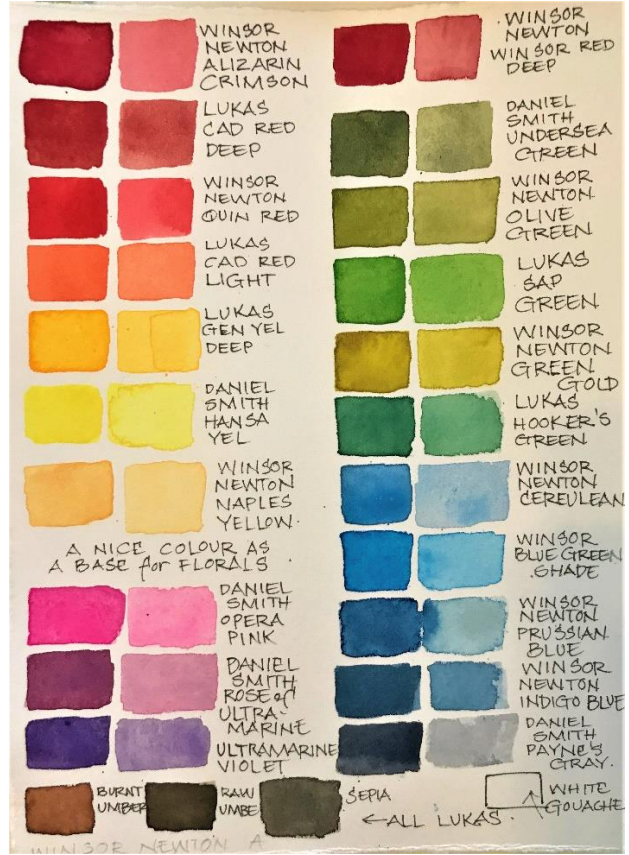 WINSOR
NEWTON
ALIZARIN
CRIMSON
LUKAS
CAD RED
DEEP
WINSOR
NEWTON
QUIN RED
LUKAS
CAD RED
LIGHT
LUKAS
GEN YEL
DEEP
DANIEL
SMITH
HANSA
YEL
WINSOR
NEWTON
NAPLES
YELLOW.
A NICE COLOUR AS
A BASE for FLORALS
DANIEL
SMITH
OPERA
PINK
DANIEL
SMITH
ROSE of
ULTRA-
MARINE
ULTRAMARINE
VIOLET
WINSOR
NEWTON
WINSOR RED
DEEP
DANIEL
SMITH
UNDERSEA
GREEN
WINSOR
NEWTON
OLIVE
GREEN
LUKAS
SAP
GREEN
WINSOR
NEWTON
GREEN
GOLD
LUKAS
HOOKER'S
GREEN
WINSOR
NEWTON
CEREULEAN
WINSOR
BLUE GREEN
SHADE
WINSOR
NEWTON
PRUSSIAN
BLUE
WINSOR
NEWTON
INDIGO BLUE
DANIEL
SMITH
PAYNE'S
GRAY.
BURNT
UMBER
RAW
UMBE
SEPIA
←ALL LUKAS.
WHITE
GOUACHE
WINSOR NEWTON A